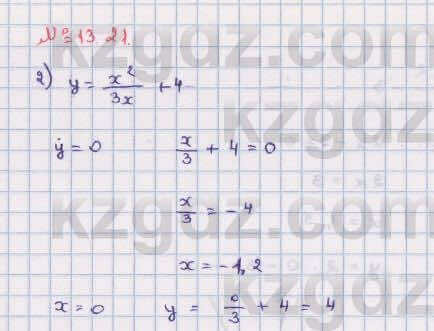 kzgdz.com
№ 13.21.
2) y = x²/3x + 4
kzgdz
y = 0 x/3 + 4 = 0
kzgdz.com
x/3 = -4
kzgdz
x = -1,2
kzgdz.com
x = 0 y = 0/3 + 4 = 4